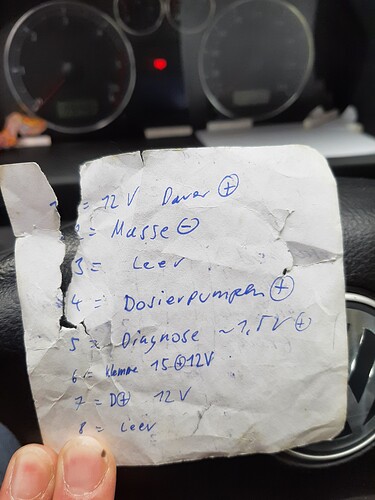 1 = 12 V Dauer ⊕
2 = Masse ⊖
3 = Leer
4 = Dosierpumpen ⊕
5 = Diagnose ~1,5V ⊕
6 = Klemme 15 ⊕ 12V
7 = D⊕ 12V
8 = Leer